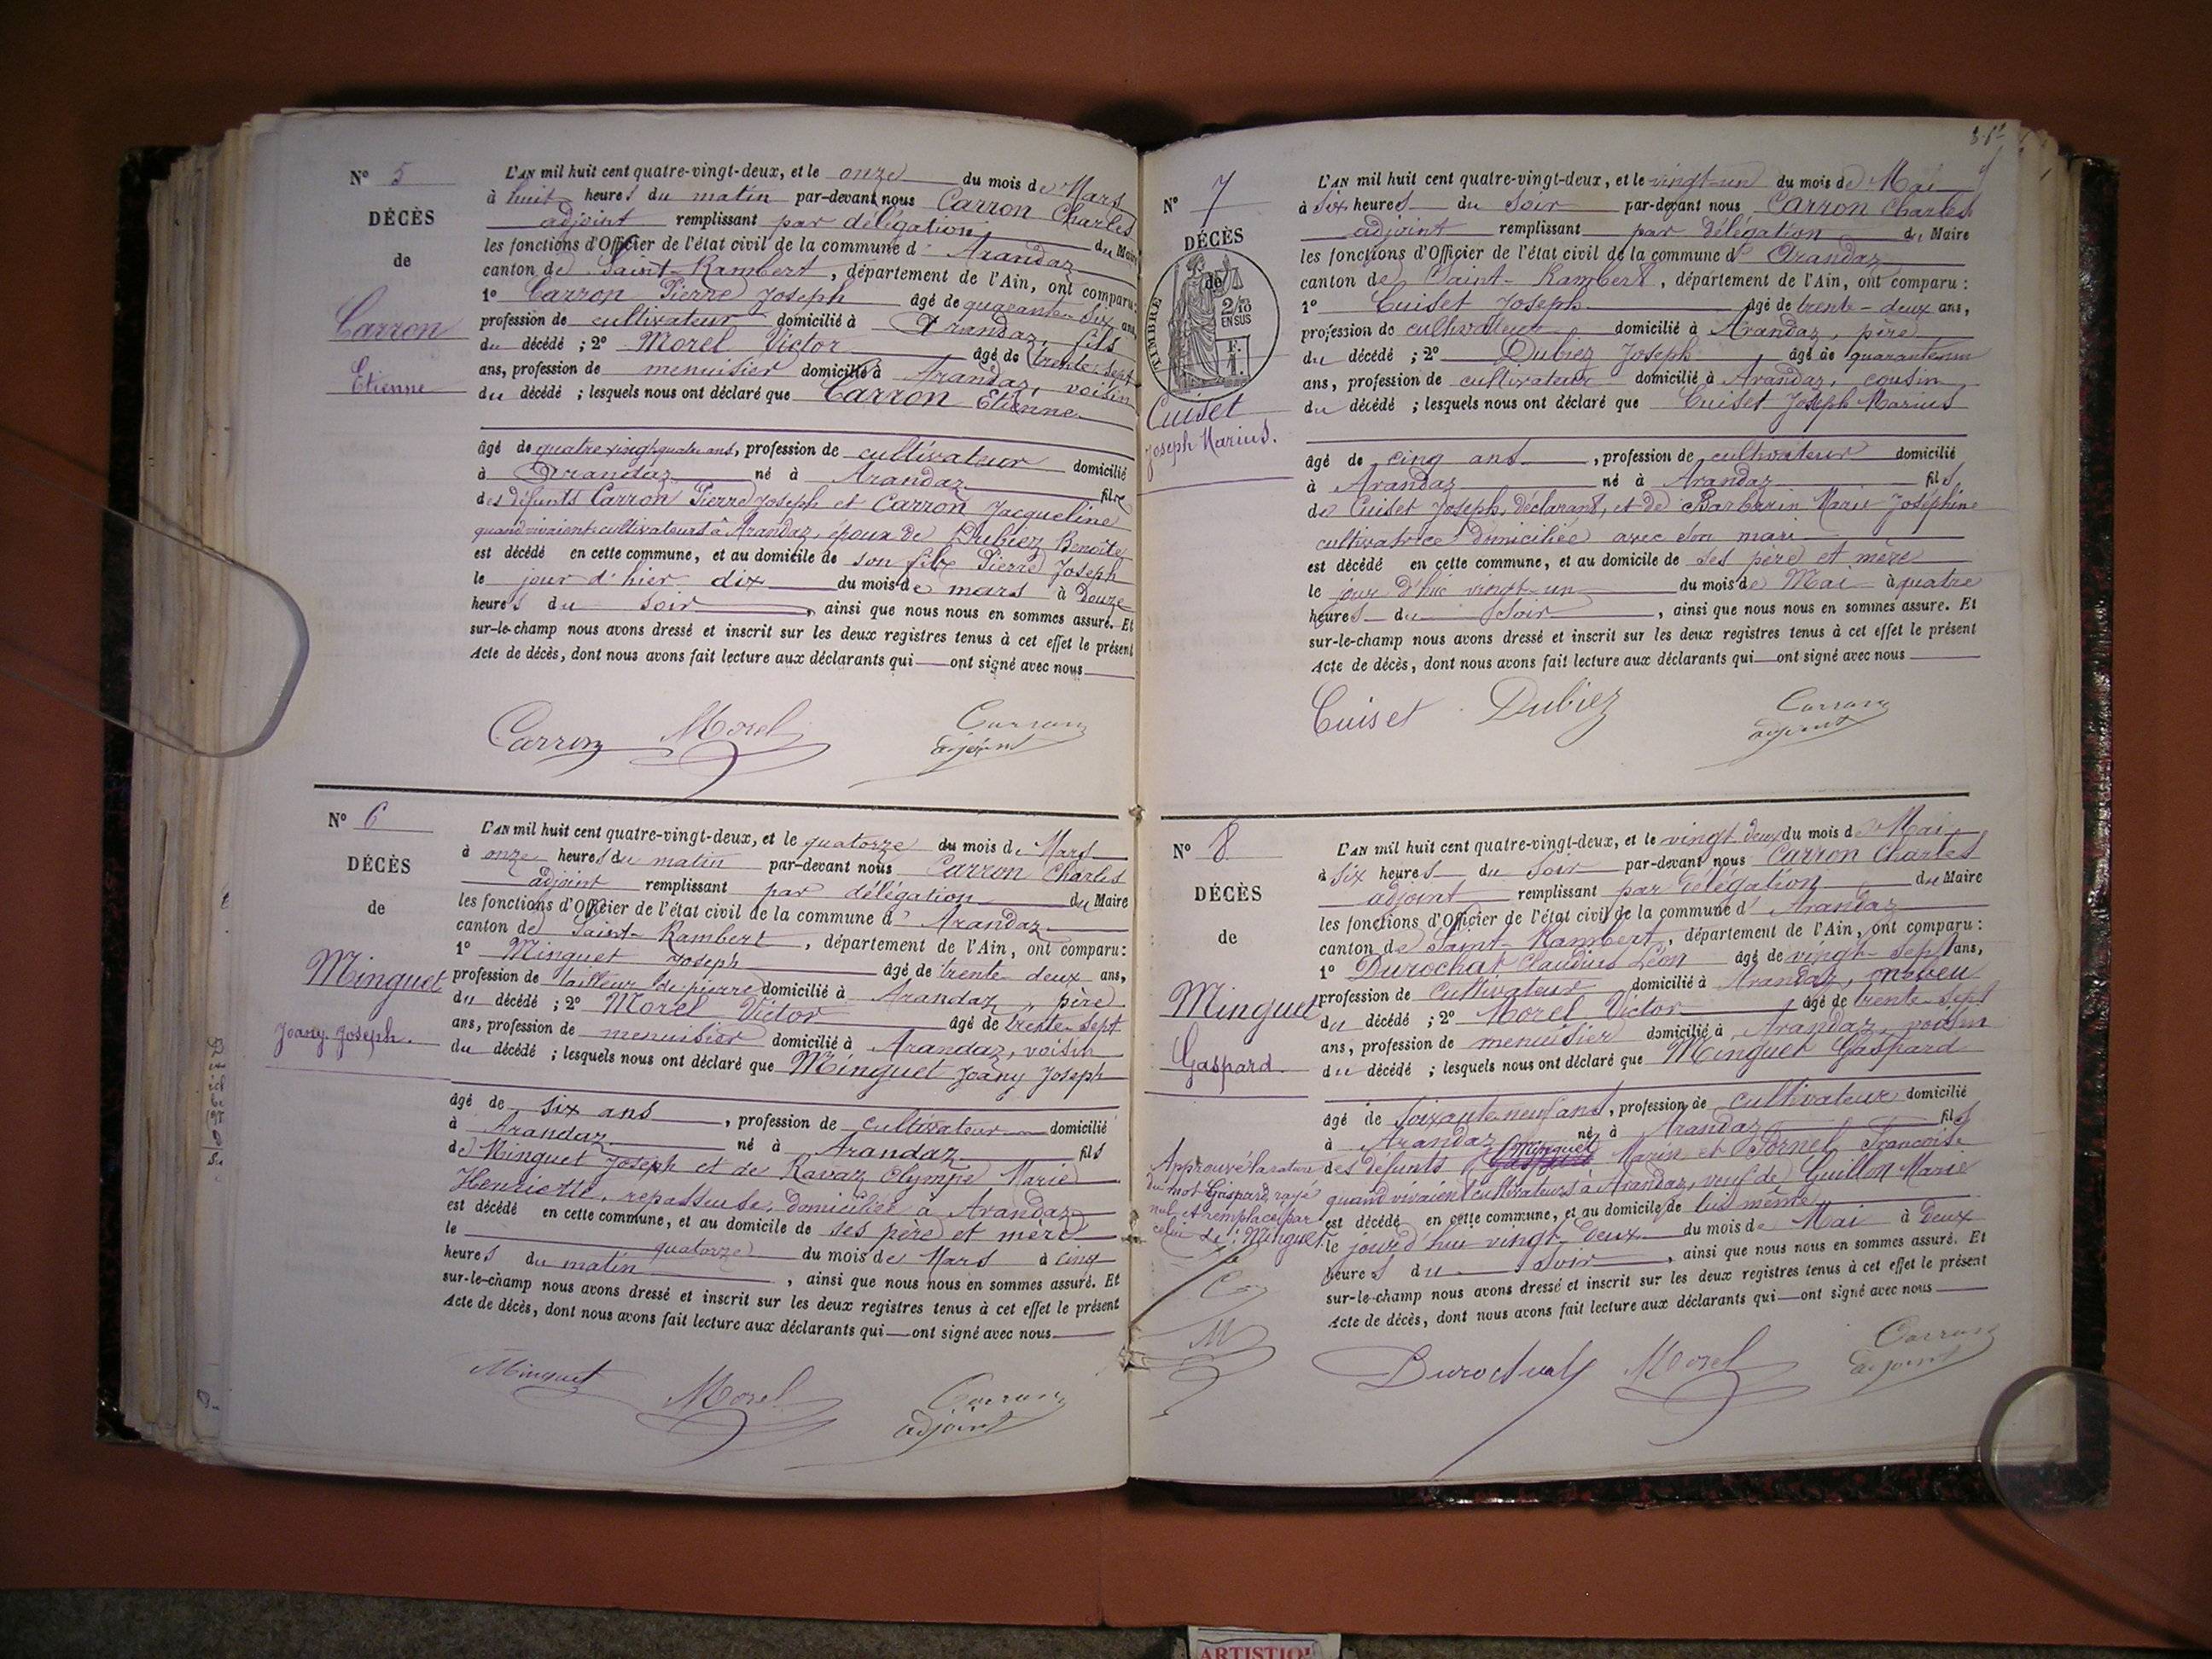 N° 5
DÉCÈS
de
Carron
Etienne
L'AN mil huit cent quatre-vingt-deux, et le onze du mois de Mars
à huit heures du matin par-devant nous Carron Charles
adjoint remplissant par délégation du Maire
les fonctions d'Officier de l'état civil de la commune d' Arandaz
canton de Saint-Rambert, département de l'Ain, ont comparu:
1° Carron Pierre Joseph âgé de quarante-six ans
profession de cultivateur domicilié à Arandaz, fils
du décédé ; 2° Morel Victor âgé de trente-sept
ans, profession de menuisier domicilié à Arandaz, voisin
du décédé ; lesquels nous ont déclaré que Carron Etienne
âgé de quatre vingt quatre ans, profession de cultivateur domicilié
à Arandaz né à Arandaz fils
des défunts Carron Pierre Joseph et Carron Jacqueline
quand vivaient cultivateurs à Arandaz, époux de Dubiez Benoîte
est décédé en cette commune, et au domicile de son fils Pierre Joseph
le jour d'hier dix du mois de mars à douze
heures du soir, ainsi que nous nous en sommes assuré. Et
sur-le-champ nous avons dressé et inscrit sur les deux registres tenus à cet effet le présent
Acte de décès, dont nous avons fait lecture aux déclarants qui — ont signé avec nous
Carron Morel Carron
adjoint
N° 6
DÉCÈS
de
Minguet
Joany Joseph.
L'AN mil huit cent quatre-vingt-deux, et le quatorze du mois de Mars
à onze heures du matin par-devant nous Carron Charles
adjoint remplissant par délégation du Maire
les fonctions d'Officier de l'état civil de la commune d' Arandaz
canton de Saint-Rambert, département de l'Ain, ont comparu:
1° Minguet Joseph âgé de trente deux ans,
profession de tailleur de pierre domicilié à Arandaz, père
du décédé ; 2° Morel Victor âgé de trente-sept
ans, profession de menuisier domicilié à Arandaz, voisin
du décédé ; lesquels nous ont déclaré que Minguet Joany Joseph
âgé de six ans, profession de cultivateur domicilié
à Arandaz né à Arandaz fils
de Minguet Joseph et de Ravaz Olympe Marie
Henriette, repasseuse, domiciliée à Arandaz
est décédé en cette commune, et au domicile de ses père et mère
le quatorze du mois de Mars à cinq
heures du matin, ainsi que nous nous en sommes assuré. Et
sur-le-champ nous avons dressé et inscrit sur les deux registres tenus à cet effet le présent
Acte de décès, dont nous avons fait lecture aux déclarants qui — ont signé avec nous
Minguet Morel Carron
adjoint
N° 7
DÉCÈS
de
TIMBRE
2/10
EN SUS
F.
1.
Cuiset
Joseph Marius.
L'AN mil huit cent quatre-vingt-deux, et le vingt-un du mois de Mai
à six heures du soir par-devant nous Carron Charles
adjoint remplissant par délégation du Maire
les fonctions d'Officier de l'état civil de la commune d' Arandaz
canton de Saint-Rambert, département de l'Ain, ont comparu :
1° Cuiset Joseph âgé de trente-deux ans,
profession de cultivateur domicilié à Arandaz, père
du décédé ; 2° Dubiez Joseph âgé de quarante un
ans, profession de cultivateur domicilié à Arandaz, cousin
du décédé ; lesquels nous ont déclaré que Cuiset Joseph Marius
âgé de cinq ans, profession de cultivateur domicilié
à Arandaz né à Arandaz fils
de Cuiset Joseph, déclarant, et de Barbarin Marie Joséphine
cultivatrice domiciliée avec son mari
est décédé en cette commune, et au domicile de ses père et mère
le jour d'hui vingt-un du mois de Mai à quatre
heures du soir, ainsi que nous nous en sommes assure. Et
sur-le-champ nous avons dressé et inscrit sur les deux registres tenus à cet effet le présent
Acte de décès, dont nous avons fait lecture aux déclarants qui — ont signé avec nous
Cuiset Dubiez Carron
adjoint
N° 8
DÉCÈS
de
Minguet
Gaspard
L'AN mil huit cent quatre-vingt-deux, et le vingt deux du mois de Mai
à six heures du soir par-devant nous Carron Charles
adjoint remplissant par délégation du Maire
les fonctions d'Officier de l'état civil de la commune d' Arandaz
canton de Saint-Rambert, département de l'Ain, ont comparu :
1° Durochat Claudius Léon âgé de vingt-sept ans,
profession de cultivateur domicilié à Arandaz, neveu
du décédé ; 2° Morel Victor âgé de trente-sept
ans, profession de menuisier domicilié à Arandaz, voisin
du décédé ; lesquels nous ont déclaré que Minguet Gaspard
âgé de soixante neuf ans, profession de cultivateur domicilié
à Arandaz né à Arandaz fils
des défunts Gaspard Minguet Marin et Françoise
quand vivaient cultivateurs à Arandaz, veuf de Guillon Marie
est décédé en cette commune, et au domicile de lui même
le jour d'hui vingt deux du mois de Mai à deux
heures du soir, ainsi que nous nous en sommes assuré. Et
sur-le-champ nous avons dressé et inscrit sur les deux registres tenus à cet effet le présent
Acte de décès, dont nous avons fait lecture aux déclarants qui — ont signé avec nous
Approuvé la rature
du mot Gaspard rayé
nul et remplacé par
celui de : Minguet.
Durochat Morel Carron
adjoint